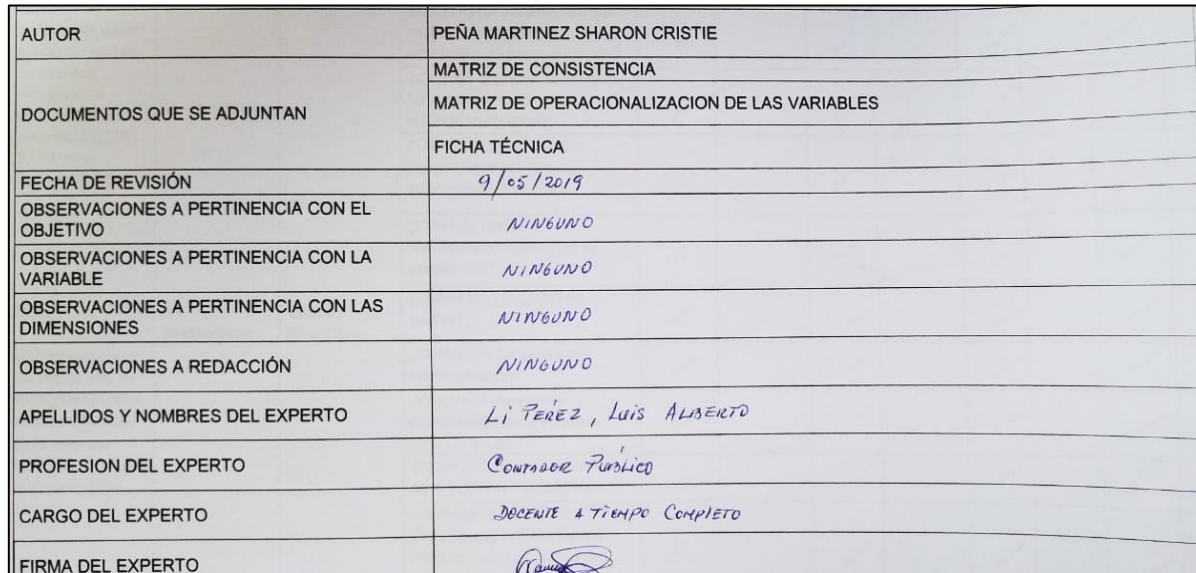 AUTOR
PEÑA MARTINEZ SHARON CRISTIE
DOCUMENTOS QUE SE ADJUNTAN
MATRIZ DE CONSISTENCIA
MATRIZ DE OPERACIONALIZACION DE LAS VARIABLES
FICHA TÉCNICA
FECHA DE REVISIÓN
9/05/2019
OBSERVACIONES A PERTINENCIA CON EL
OBJETIVO
NINGUNO
OBSERVACIONES A PERTINENCIA CON LA
VARIABLE
NINGUNO
OBSERVACIONES A PERTINENCIA CON LAS
DIMENSIONES
NINGUNO
OBSERVACIONES A REDACCIÓN
NINGUNO
APELLIDOS Y NOMBRES DEL EXPERTO
Li PÉREZ, Luis ALBERTO
PROFESION DEL EXPERTO
CONTADOR PÚBLICO
CARGO DEL EXPERTO
DOCENTE A TIEMPO COMPLETO
FIRMA DEL EXPERTO